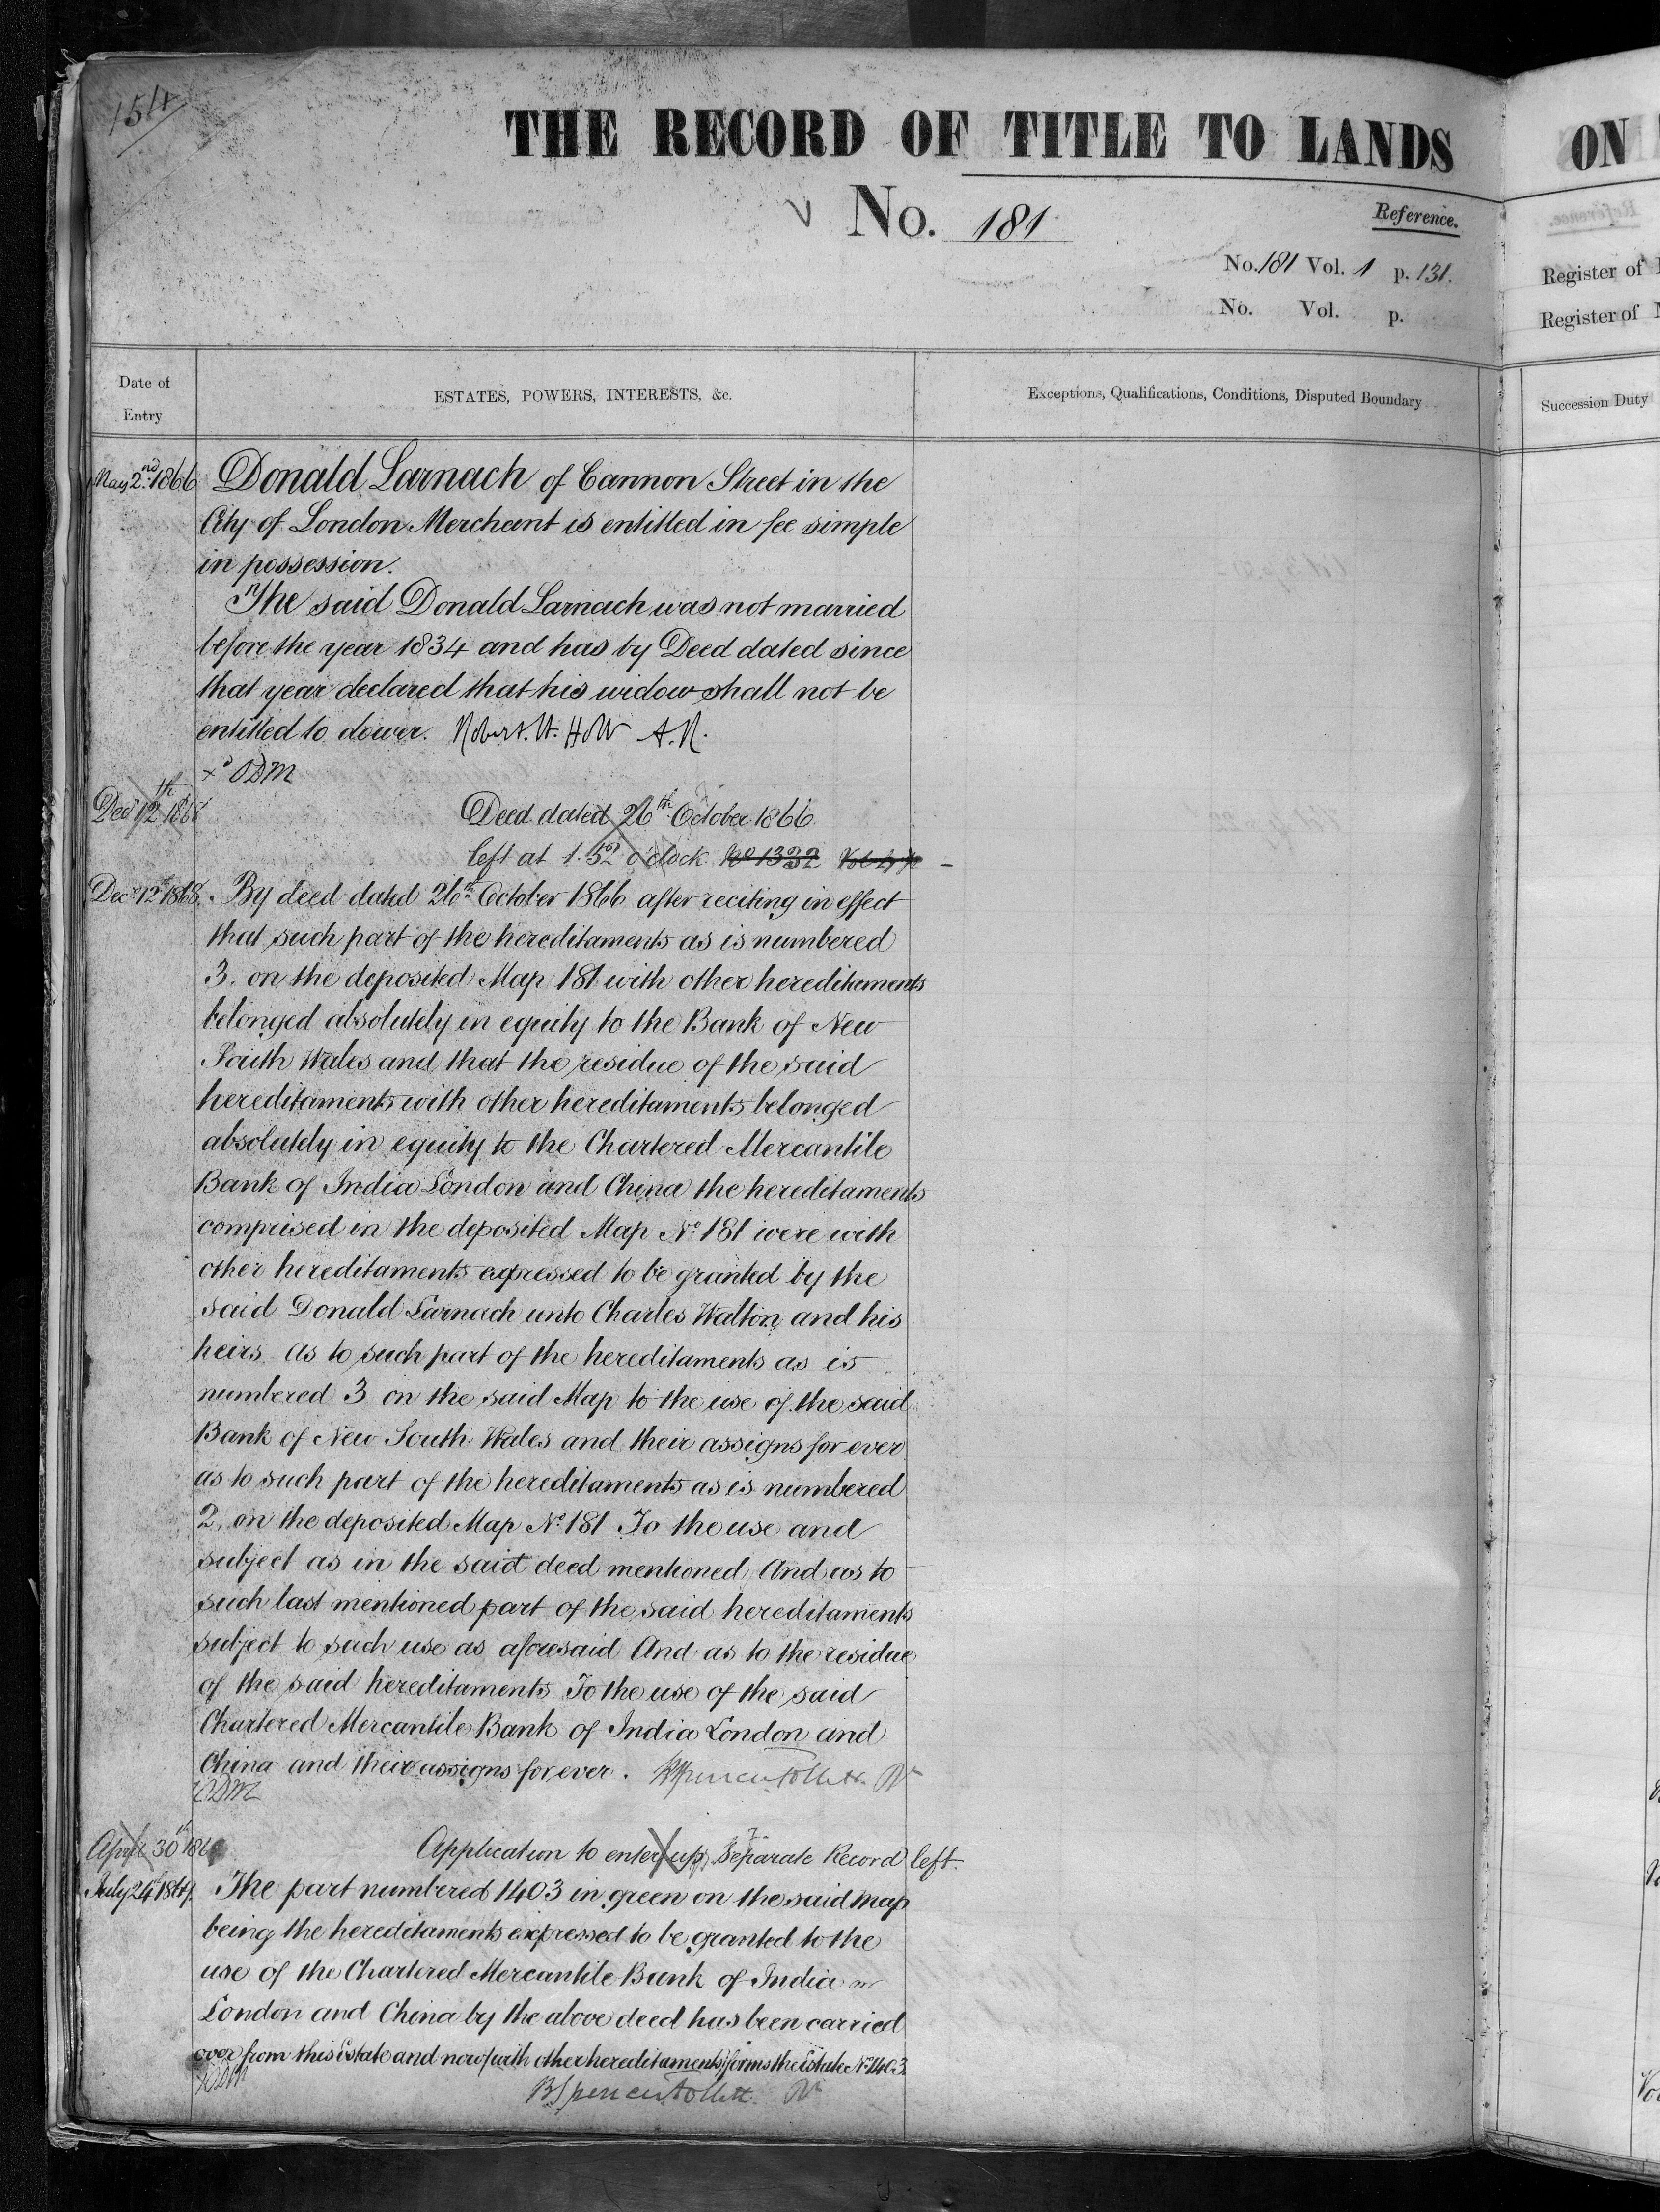 154
THE RECORD OF TITLE TO LANDS
No. 181
Reference.
No. 181 Vol. 1 p. 131.
No. Vol. p.
Date of Entry
ESTATES, POWERS, INTERESTS, &c.
Exceptions, Qualifications, Conditions, Disputed Boundary
May 2nd 1866 Donald Larnach of Cannon Street in the
City of London Merchant is entitled in fee simple
in possession.
The said Donald Larnach was not married
before the year 1834 and has by Deed dated since
that year declared that his widow shall not be
entitled to dower. A.R.
xd ODM
Decr 12th 1868 Deed dated 26th October 1866
left at 1.52 o'clock No 1332
Decr 12th 1868. By deed dated 26th October 1866 after reciting in effect
that such part of the hereditaments as is numbered
3. on the deposited Map 181 with other hereditaments
belonged absolutely in equity to the Bank of New
South Wales and that the residue of the said
hereditaments with other hereditaments belonged
absolutely in equity to the Chartered Mercantile
Bank of India London and China the hereditaments
comprised in the deposited Map No. 181 were with
other hereditaments expressed to be granted by the
said Donald Larnach unto Charles Walton and his
heirs as to such part of the hereditaments as is
numbered 3 on the said Map to the use of the said
Bank of New South Wales and their assigns for ever
as to such part of the hereditaments as is numbered
2. on the deposited Map No. 181 To the use and
subject as in the said deed mentioned And as to
such last mentioned part of the said hereditaments
subject to such use as aforesaid And as to the residue
of the said hereditaments To the use of the said
Chartered Mercantile Bank of India London and
China and their assigns for ever. BSpencer Follett R
ODM
April 30th Application to enter up Separate Record left.
July 24th 1869. The part numbered 1403 in green on the said Map
being the hereditaments expressed to be granted to the
use of the Chartered Mercantile Bank of India
London and China by the above deed has been carried
over from this Estate and now (with other hereditaments) forms the Estate No. 1403.
BSpencer Follett R
ON
Register of
Register of
Succession Duty